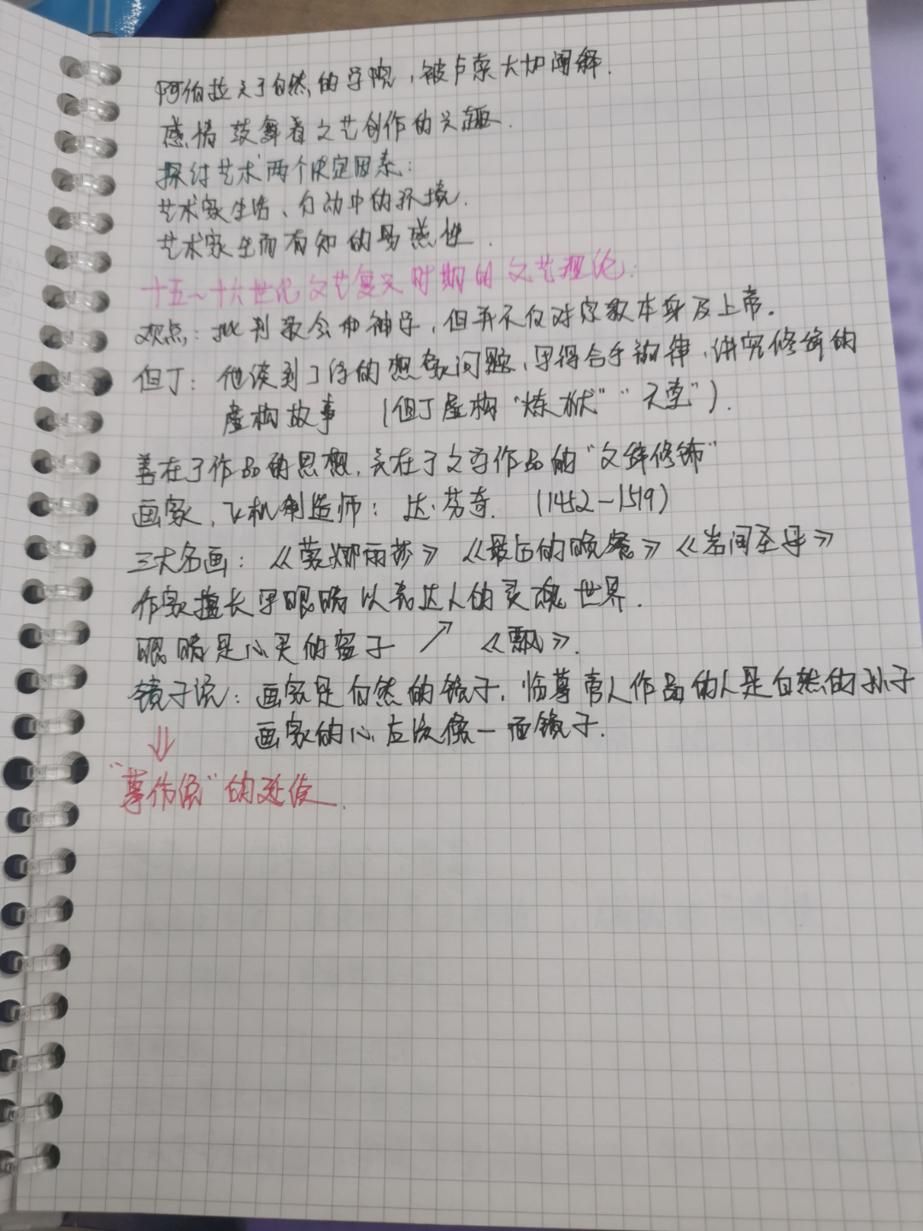 阿伯拉关于自然的学院,被卢梭大加阐释.
感情鼓舞着文艺创作的兴趣.
探讨艺术两个决定因素:
艺术家生活、行动中的环境.
艺术家生而有知的易感性.
十五~十六世纪文艺复兴时期的文艺理论:
观点:批判教会和神学,但并不反对宗教本身及上帝。
但丁:他谈到了诗的想象问题,写得合乎韵律,讲究修饰的
虚构故事 (但丁虚构“炼狱”“天堂”).
善在于作品的思想,美在于文学作品的“文辞修饰”
画家,飞机制造师:达·芬奇. (1452-1519)
三大名画:《蒙娜丽莎》《最后的晚餐》《岩间圣母》
作家擅长用眼睛以表达人的灵魂世界.
眼睛是心灵的窗子 ↗ 《飘》.
镜子说:画家是自然的镜子,临摹前人作品的人是自然的孙子
画家的心应该像一面镜子.
⇓
“摹仿说”的延伸.